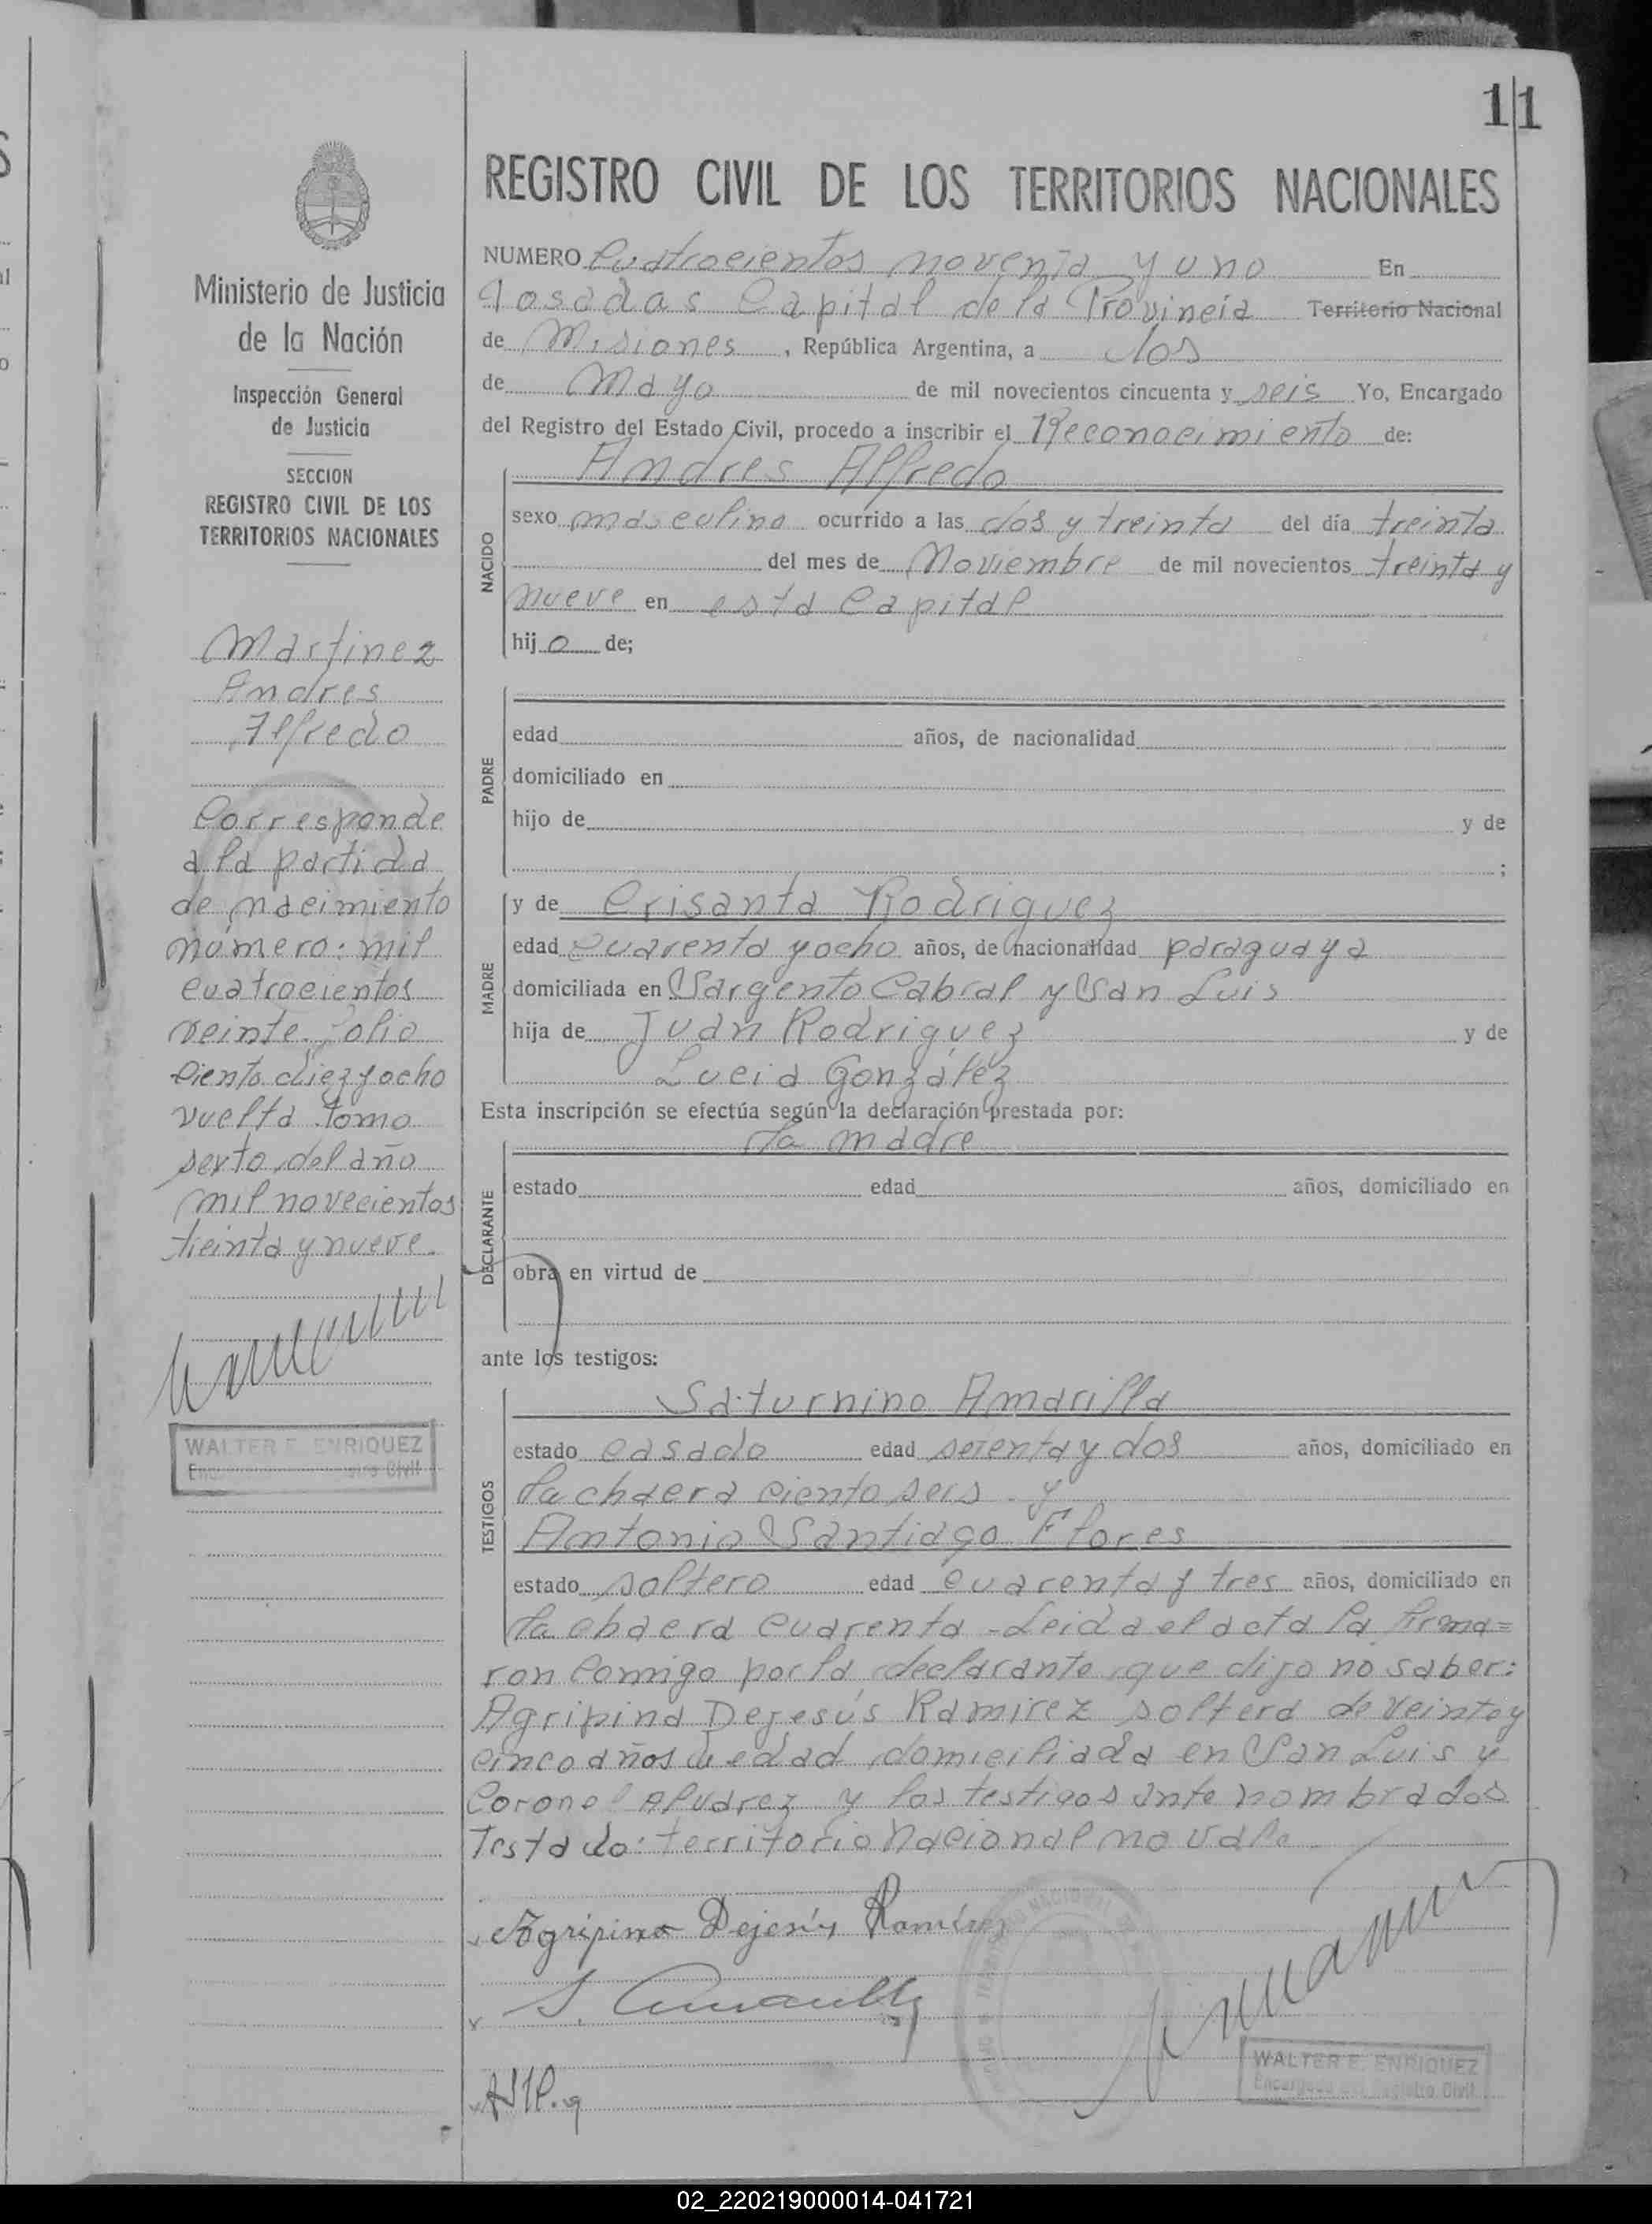 11
REGISTRO CIVIL DE LOS TERRITORIOS NACIONALES
Ministerio de Justicia
de la Nación
Inspección General
de Justicia
SECCION
REGISTRO CIVIL DE LOS
TERRITORIOS NACIONALES
Martinez
Andres
Alfredo
Corresponde
a la partida
de nacimiento
número: mil
cuatrocientos
veinte folio
ciento diez y ocho
vuelta tomo
sexto del año
mil novecientos
treinta y nueve.
WALTER E. ENRIQUEZ
NUMERO Cuatrocientos noventa y uno En
Posadas Capital de la Provincia Territorio Nacional
de Misiones, República Argentina, a dos
de Mayo de mil novecientos cincuenta y seis Yo, Encargado
del Registro del Estado Civil, procedo a inscribir el Reconocimiento de:
NACIDO
Andres Alfredo
sexo masculino ocurrido a las dos y treinta del día treinta
del mes de Noviembre de mil novecientos treinta y
nueve en esta Capital
hijo de;
PADRE
edad años, de nacionalidad
domiciliado en
hijo de y de
;
MADRE
y de Crisanta Rodriguez
edad cuarenta y ocho años, de nacionalidad paraguaya
domiciliada en Sargento Cabral y San Luis
hija de Juan Rodriguez y de
Lucia González
Esta inscripción se efectúa según la declaración prestada por:
DECLARANTE
La madre
estado edad años, domiciliado en
obra en virtud de
ante los testigos:
TESTIGOS
Saturnino Amarilla
estado casado edad setenta y dos años, domiciliado en
La chacra ciento seis y
Antonio Santiago Flores
estado soltero edad cuarenta y tres años, domiciliado en
La chacra cuarenta - Leida el acta la firma=
ron comigo por la declarante que dijo no saber:
Agripina Dejesús Ramirez soltera de veinte y
cinco años de edad domiciliada en San Luis y
Coronel Alvarez y los testigos ante nombrados
Testado: territorio Nacional no vale
Agripina Dejesús Ramírez
S. Amarilla
WALTER E. ENRIQUEZ
Encargado del Registro Civil
02_220219000014-041721